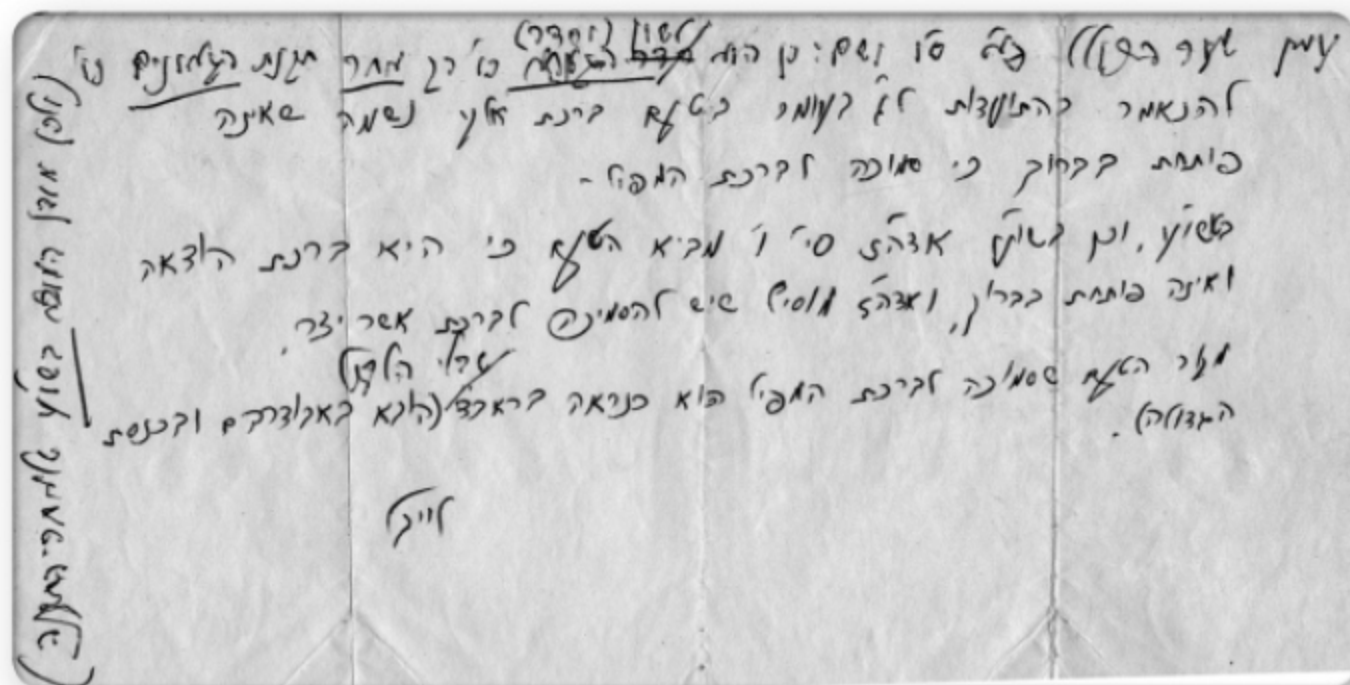 לשון (וחדר)
עיין שער הכולל פ"א ס"ו ושם: כן הוא הטעם כו' רק אחר תקנת הגאונים כו'
להנאמר בהתועדות לג בעומר בטעם ברכת אלקי נשמה שאינה
פותחת בברוך כי סמוכה לברכת המפיל -
בטשו"ע, וכן בשו"ע אדה"ז סי' ו' מביא הטעם כי היא ברכת הודאה
ואינה פותחת בברוך, ואדה"ז מוסיף שיש להסמיכה לברכת אשר יצר.
שבלי הלקט
מקור הטעם שסמוכה לברכת המפיל הוא כנראה בראבד (הובא באבודרהם ובכנשת
הגדולה).
לויק
(ולכן מובן השמטה בשו"ע